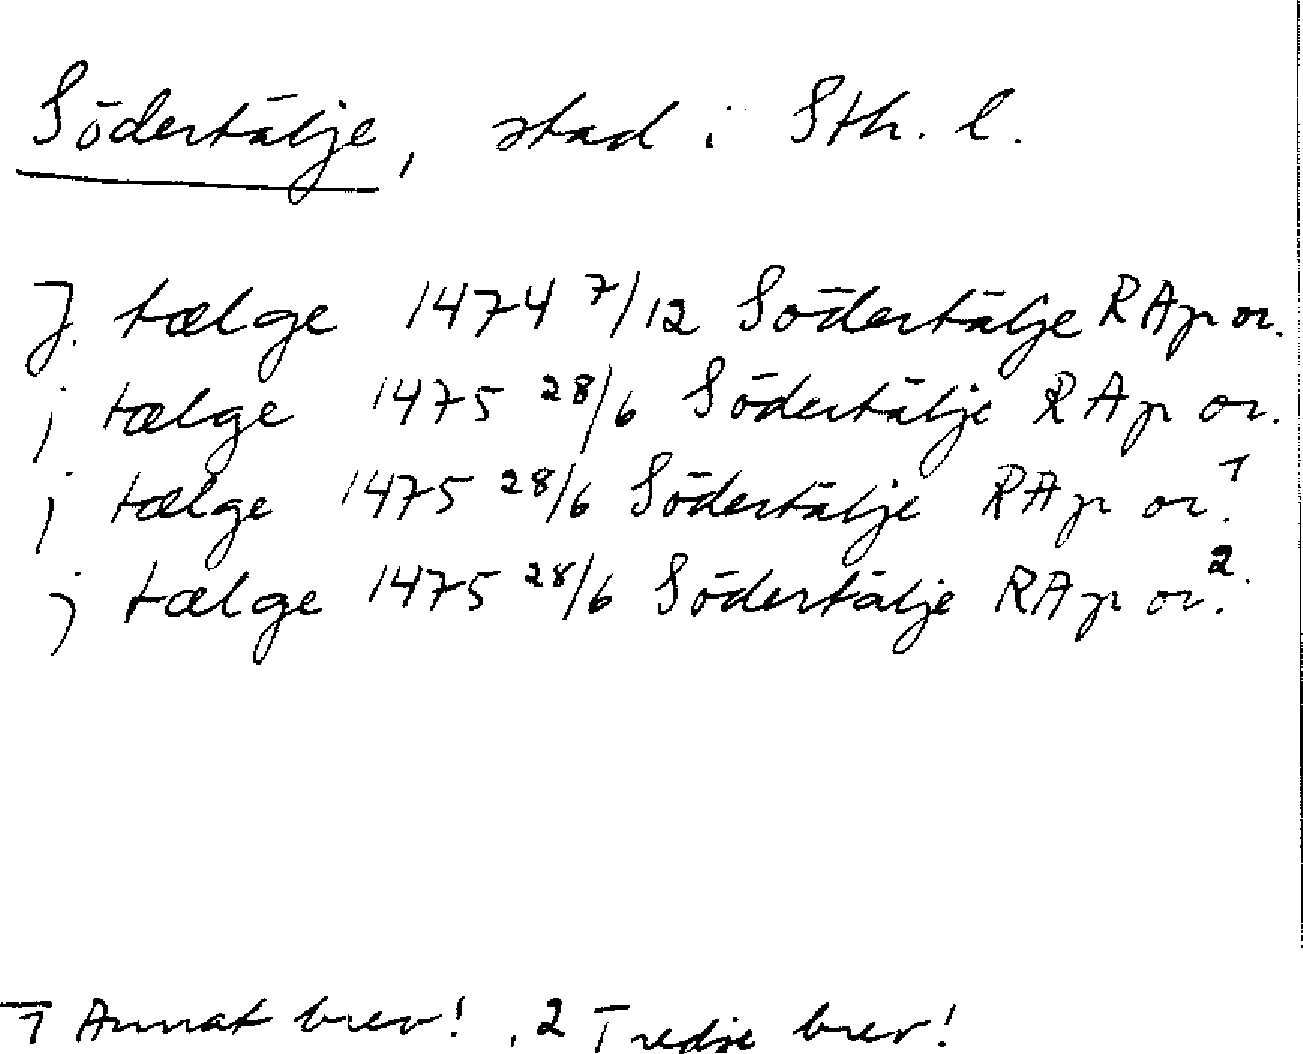 Södertälje, stad i Sth. l.
J. tælge 1474 7/12 Södertälje RAp or.
j tælge 1475 28/6 Södertälje RAp or.
j tælge 1475 28/6 Södertälje RAp or.1
j tælge 1475 28/6 Södertälje RAp or.2
1 Annat brev! , 2 Tredje brev!